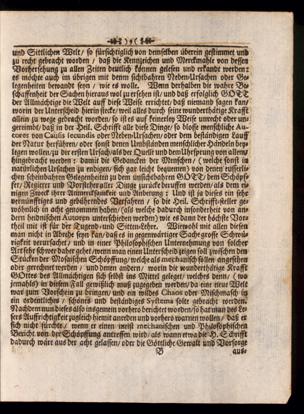 und Sittlichen Welt / so fürsichtiglich von demselben überein gestimmet und
zu recht gebracht worden / daß die Kennzeichen und Merckmahle von dessen
Vorhersehung zu allen Zeiten deutlich können gelesen und erkandt werden:
es möchte auch im übrigen mit denen sichtbahren Neben-Ursachen oder Ge-
legenheiten bewandt seyn / wie es wolle. Wenn derhalben die wahre Be-
schaffenheit der Sachen hieraus wol zu ersehen ist / und daß erfolglich GOTT
der Allmächtige die Welt auff diese Weise errichtet / daß niemand sagen kan /
worin der Unterscheid hierin stecke / weil alles durch seine wunderthätige Krafft
allein zu wege gebracht worden / so ist es auf keinerley Weise unrecht oder un-
gereimt / daß in der Heil. Schrifft alle diese Dinge / so blosse menschliche Au-
tores von Causis secundis oder Neben-Ursachen / oder dem beständigen Lauff
der Natur herführen / oder sonst denen Umständen menschlicher Händeln bey-
legen wollen / zu der ersten Ursach als der Quelle und dem Uhrsprung von allem
hingebracht werden: damit die Gedancken der Menschen / (welche sonst in
natürlichen Ursachen zu ruhigen / sich gar leicht bequemen) von denen äusserli-
chen scheinbahren Gelegenheiten zu dem unsichtbahren GOTT dem Schöpf-
fer / Regierer und Vorsteher aller Dinge zurücke beruffen werden / als dem ei-
nigen Zweck ihrer Aufmercksamkeit und Anbetung: Und ist ja dieses ein sehr
vernünfftiges und gebührendes Verfahren / so die Heil. Schrifft-steller ge-
wöhnlich in acht genommen haben / (als welche dadurch insonderheit von an-
dern heidnischen Autoren unterschieden werden) wie es dann der höchste Vor-
theil mit ist für die Tugend- und Sitten-Lehre. Wiewohl mit allen diesen
man nicht in Abrede seyn kan / daß es in gegenwärtiger Sache grosse Schwie-
rigkeit verursachet / und in einer Philosophischen Unternehmung von solcher
Art sehr schwer daher gehet / wenn man einen Unterscheid zeigen soll zwischen den
Stücken der Mosaischen Schöpffung / welche als mechanisch sollen angesehen
oder gerechnet werden / und denen andern / worin die wunderthätige Krafft
GOttes des Allmächtigen sich selbst ins Mittel geleget / welches denn / (wo
jemahls) in diesem Fall gewißlich muß zugegeben werden / da eine neue Welt
war zum Vorschein zu bringen / und ein wildes Chaos oder Mischmasch in
ein ordentliches / schönes und beständiges Systema solte gebracht werden.
Nachdem nun dieses also insgemein vorhero berichtet worden / so hat man des Le-
sers Auffrichtigkeit zugleich hiemit anreden und vorhero warnen wollen / daß er
sich nicht fürchte / wenn er einen meist mechanischen und Philosophischen
Bericht von der Schöpffung antreffen wird / als wann etwa die H. Schrifft
dadurch wäre aus der acht gelassen / oder die Göttliche Gewalt und Vorsorge
B aus-